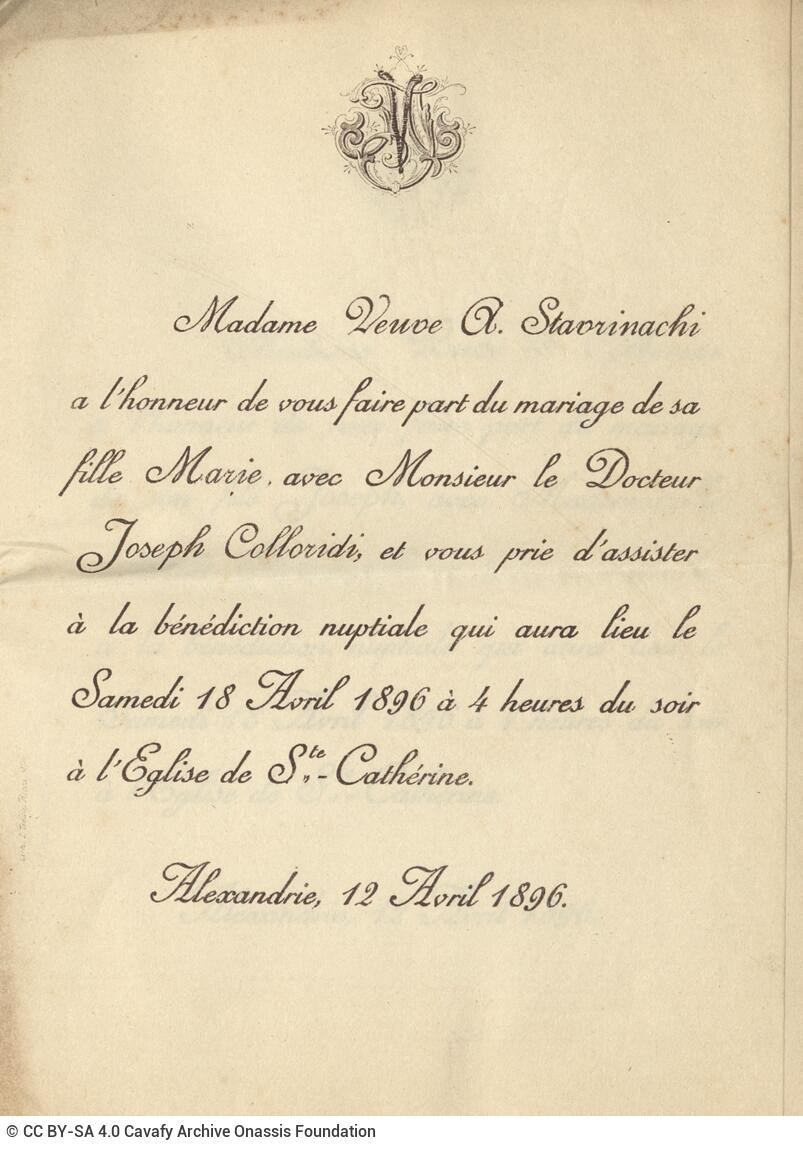 Madame Veuve A. Stavrinachi
a l'honneur de vous faire part du mariage de sa
fille Marie, avec Monsieur le Docteur
Joseph Colloridi, et vous prie d'assister
à la bénédiction nuptiale qui aura lieu le
Samedi 18 Avril 1896 à 4 heures du soir
à l'Eglise de Ste-Cathérine.
Alexandrie, 12 Avril 1896.
© CC BY-SA 4.0 Cavafy Archive Onassis Foundation